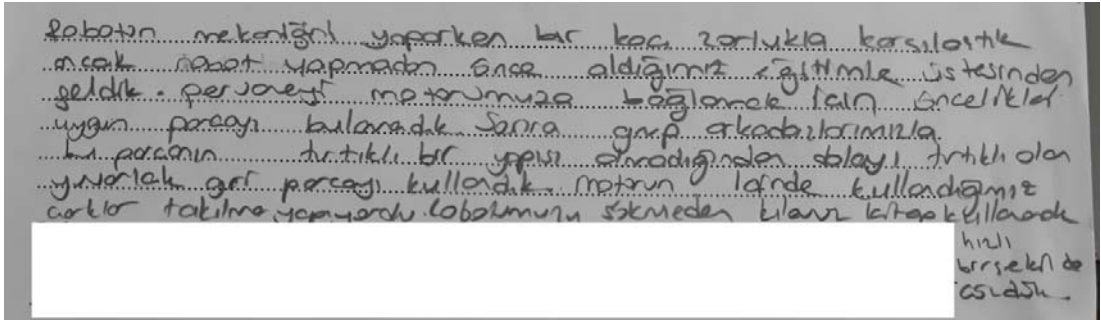 Robotun mekaniğini yaparken bir kaç zorlukla karşılaştık
ancak robot yapmadan önce aldığımız eğitimle üstesinden
geldik. pervaneyi motorumuza bağlamak için öncelikle
uygun parçayı bulamadık Sonra grup arkadaşlarımızla.
bu parçanın tırtıklı bir yapısı olmadığından dolayı tırtıklı olan
yuvarlak gri parçayı kullandık. motorun içinde kullandığımız
çarklar takılma yapıyordu. robotumuzu sökmeden kılavuz kitap kullanarak
hızlı
bir şekilde